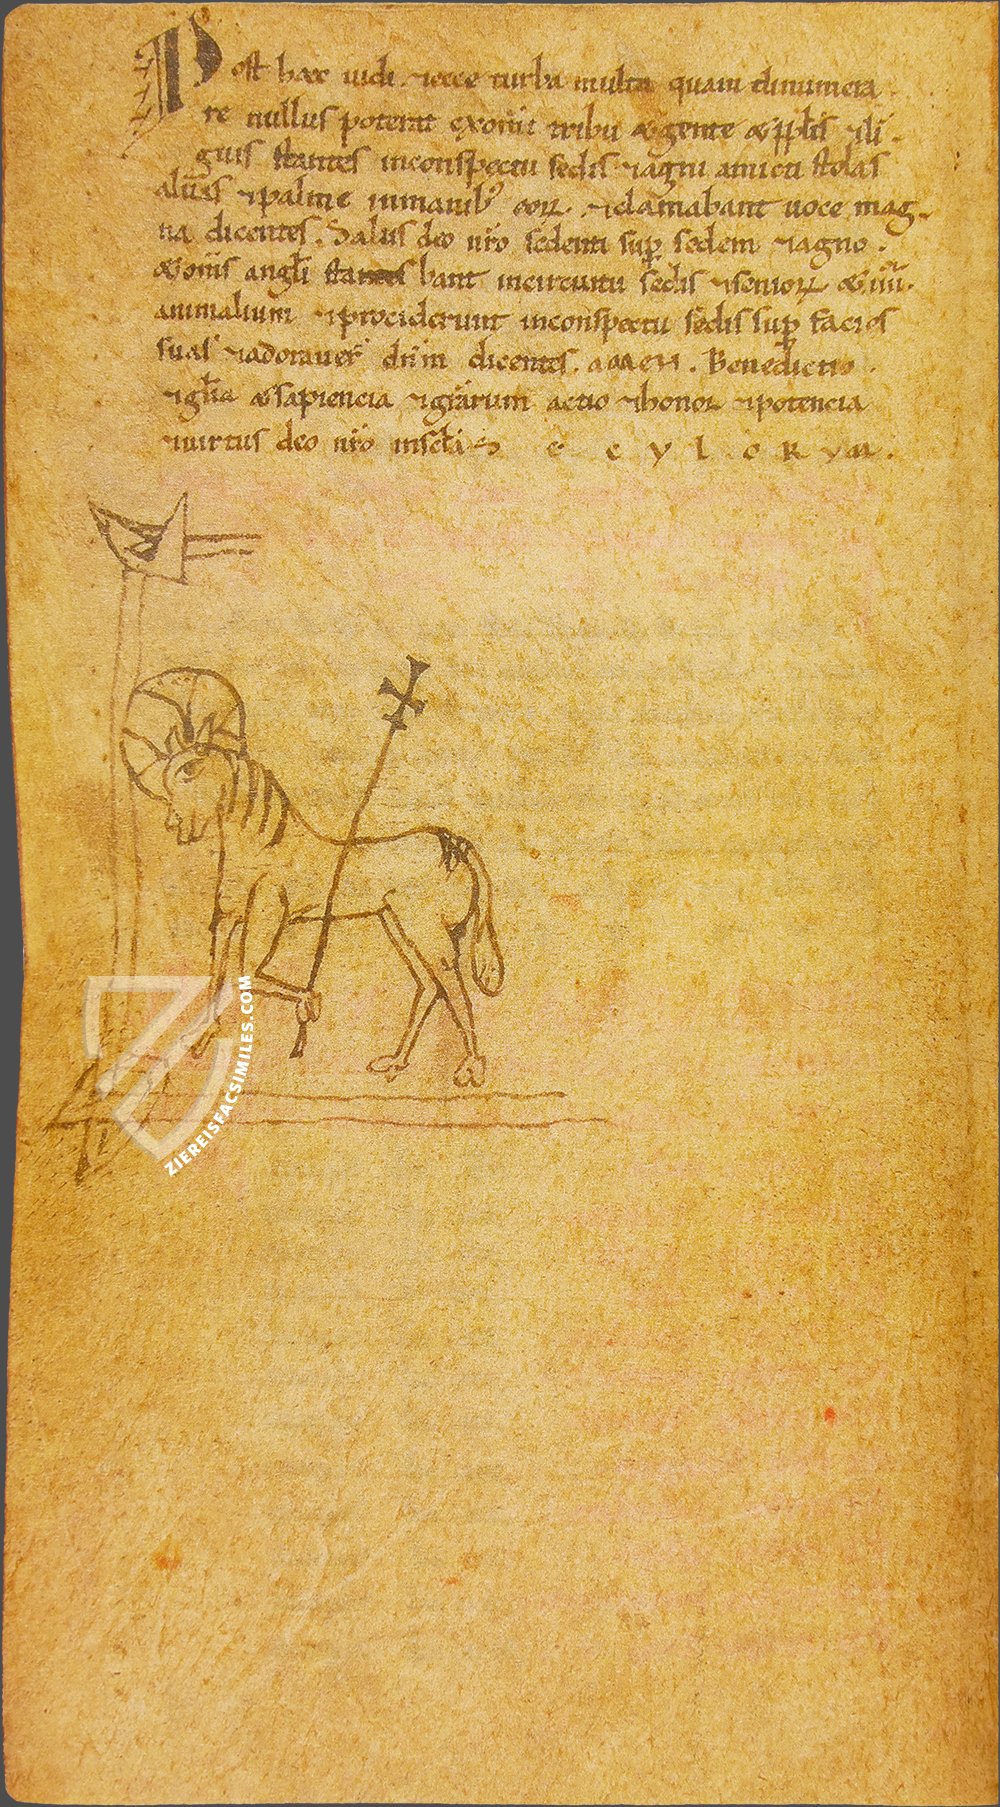 Post haec uidi . & ecce turba multa quam dinumera
re nullus poterat ex omĩi tribu & gente & pplis & li .
guis stantes in conspectu sedis & agni amicti stolas
albas & palme in manib; eoꝝ . & clamabant uoce mag-
na dicentes . Salus deo nr̃o sedenti sup sedem & agno .
& oms̃ angli stantes bant in circuitu sedis & senioꝝ & iiii .
animalium & prociderunt in conspectu sedis sup facies
suas & adorauer̃ dñm dicentes . amen . Benedictio .
& gl̃a & sapiencia & gr̃arum actio & honor & potencia
& uirtus deo nr̃o in scl̃a s e c u l o R u m .
ZIEREISFACSIMILES.COM